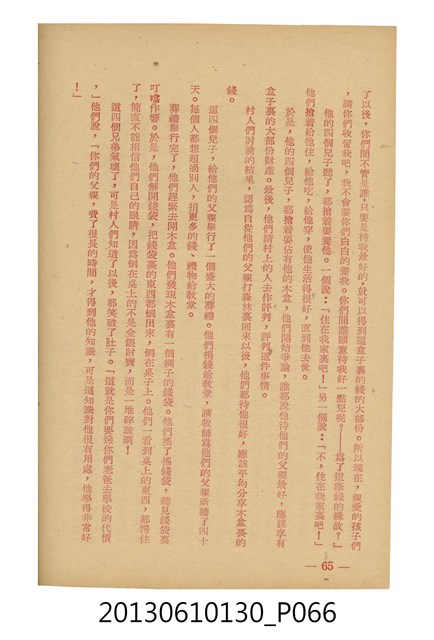 了以後，你們間不管是誰，只要是待我最好的，就可以得到這盒子裏的錢的大部份。所以現在，親愛的孩子們
，請你們收留我吧，我不會要你們白白的養我。你們間誰願意待我好一點兒呢？——爲了這些錢的緣故？」
他的四個兒子聽了，都搶着要養他。一個說：「住在我家裏吧！」另一個說：「不，住在我家裏吧！」
他們搶着給他住，給他吃，給他穿，使他生活得很好，直到他去世。
於是，他的四個兒子，都搶着要佔有他的木盒，他們開始爭論，誰都說他待他們的父親最好，應該享有
盒子裏的大部份財產。最後，他們請村上的人去作評判，評判這件事情。
村人們討論的結果，認爲自從他們的父親打森林裏回來以後，他們都待他很好，應該平均分享木盒裏的
錢。
這四個兒子，給他們的父親舉行了一個盛大的葬禮。他們捐錢給教堂，請牧師爲他們的父親祈禱了四十
天。每個人都想超過別人，捐更多的錢、禮物給教堂。
葬禮舉行完了，他們趕緊去開木盒。他們發現木盒裏有一個綢子的錢袋。他們搖了搖錢袋，聽見錢袋裏
叮噹作響。於是，他們解開錢袋，把錢袋裏的東西都倒出來，倒在桌子上。他們一看到桌上的東西，都愕住
了，簡直不能相信他們自己的眼睛，因爲倒在桌上的不是金銀財寶，而是一堆碎玻璃！
這四個兄弟氣壞了，可是村人們知道了以後，都笑破了肚子。「這就是你們要送你們老爸去學校的代價
，」他們說，「你們的父親，費了很長的時間，才得到他的知識，可是這知識對他很有用處，他學得非常好
！」
— 65 —
20130610130_P066